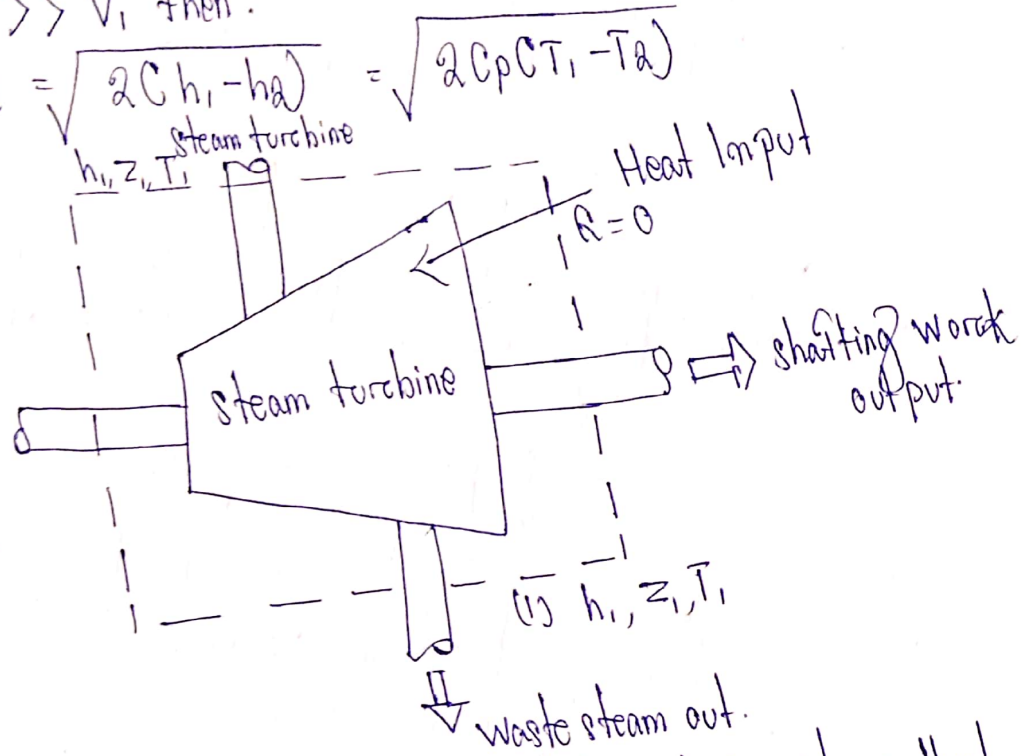 >> V₁ then.
= √2(h₁-h2) = √2Cp(T₁-T2)
steam turbine
h₁, Z₁, T₁
Heat Input
Q=0
steam turbine
shafting work
output.
(1) h₁, Z₁, T₁
waste steam out.